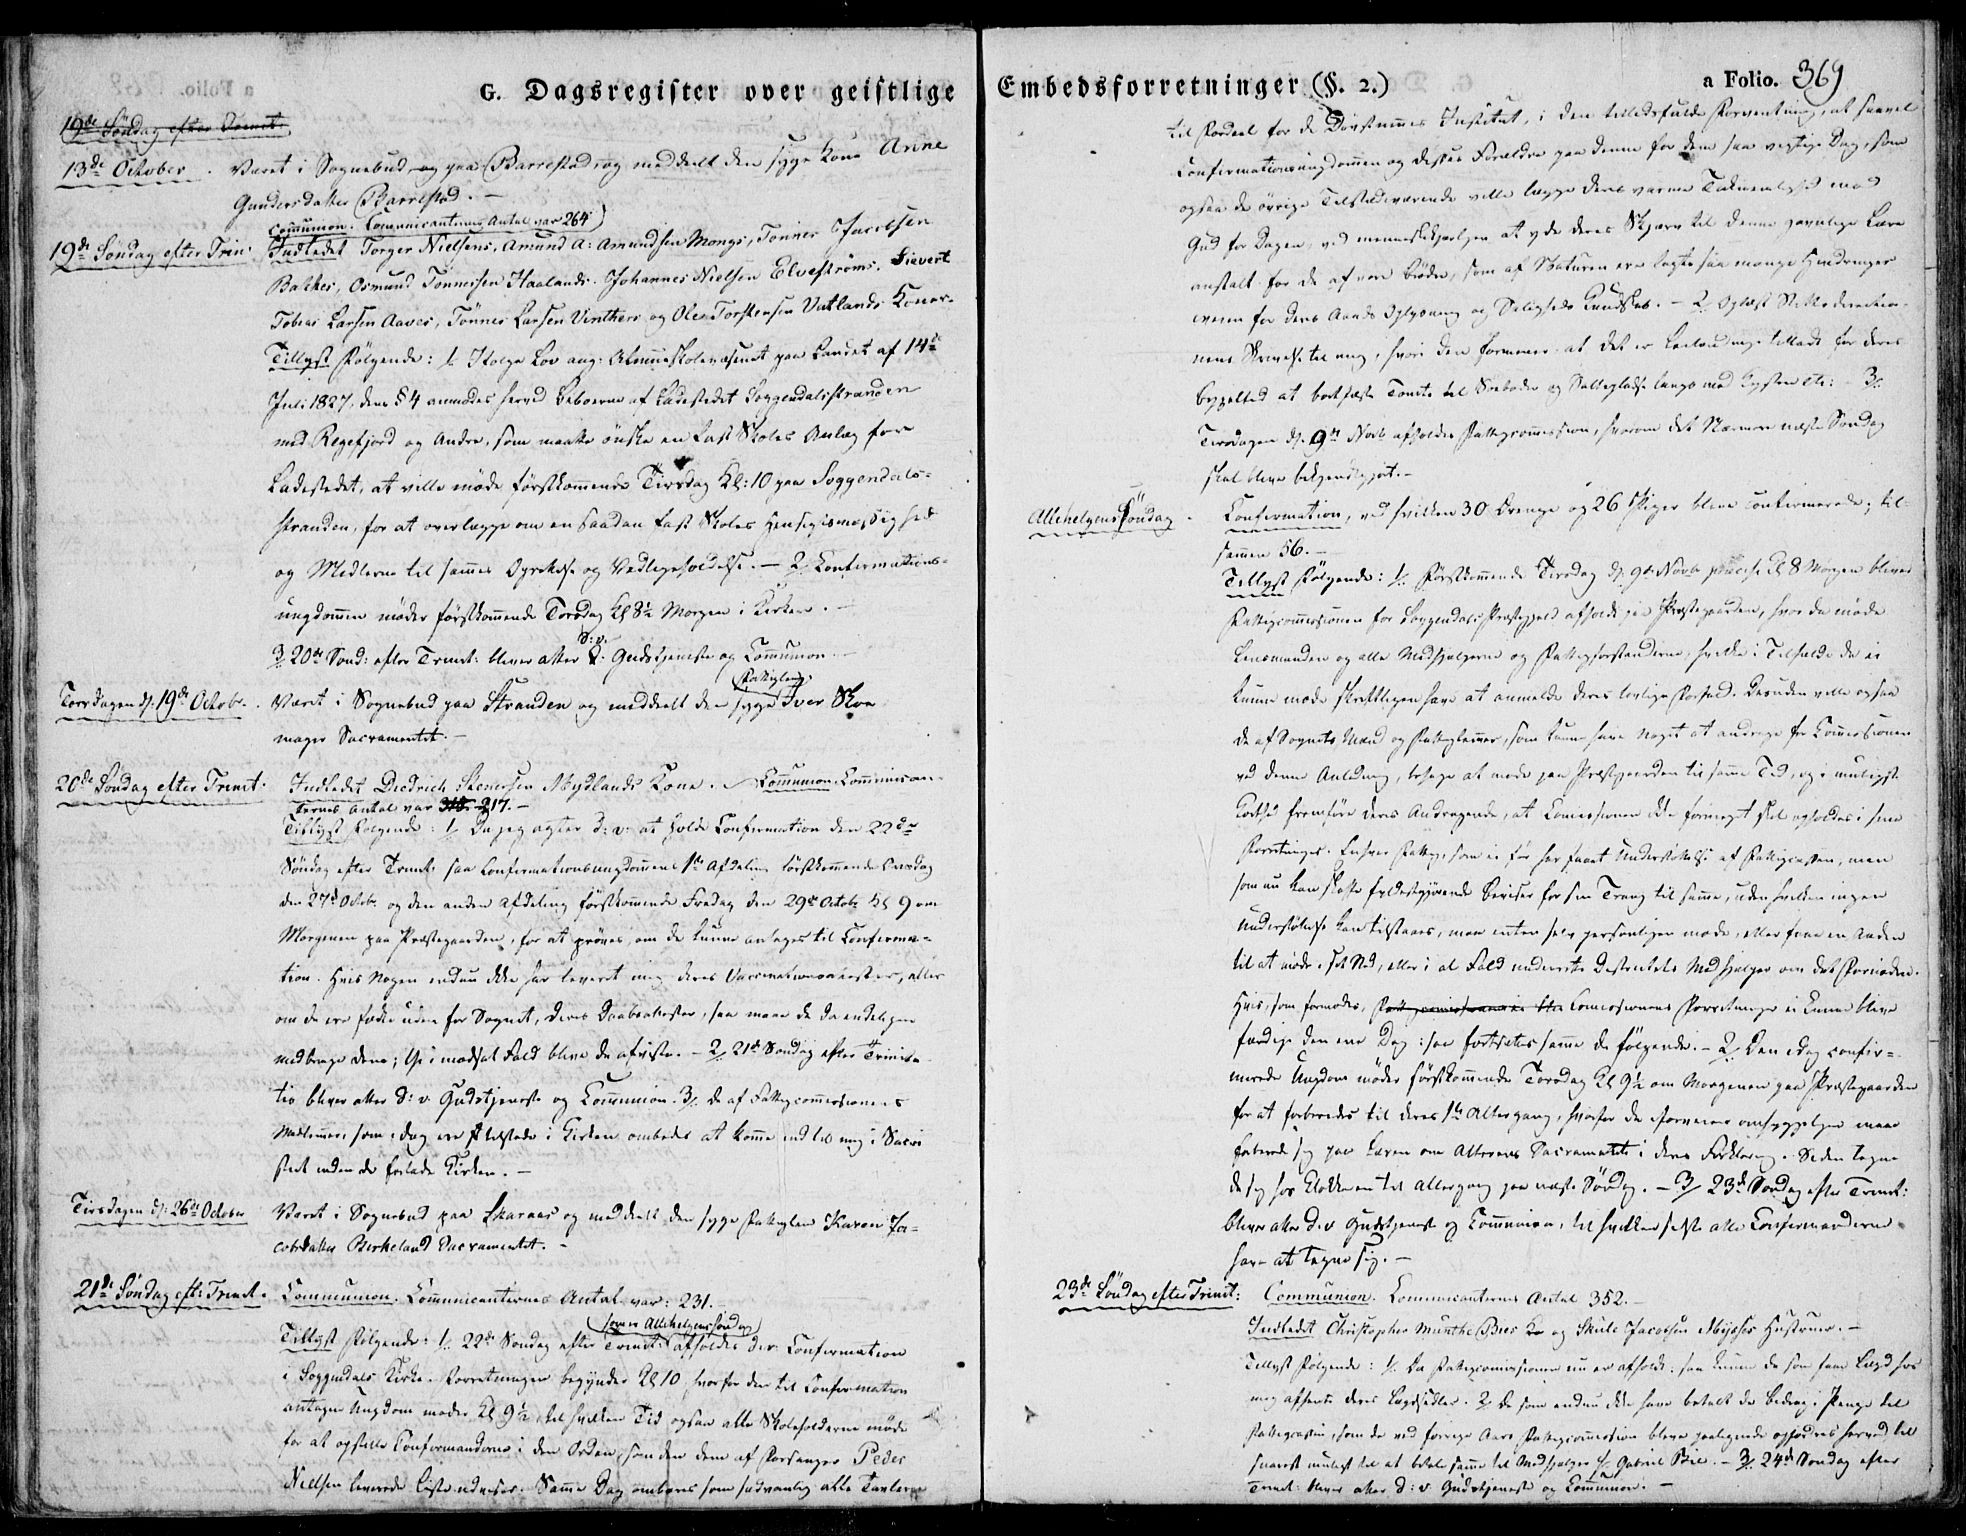 G. Dagsregister over geistlige
19de Söndag efter Trinit:
13de October. Været i Sognebud og paa Barrestad og meddeelt den syge Kone Anne
Gundersdatter Barrestad. –
Communion. Communicanternes Antal var 264
19de Söndag efter Trin: Indledet Torger Nielsens, Amund A: Amundsen Mongs, Tönnes Jacobsen
Bakkes, Osmund Tönnesen Haalands, Johannes Nielsen Elveströms, Sievert
Tobias Larsen Aaves, Tönnes Larsen Vinthers og Ole Torstensen Vatlands Koner.
Tillyst Fölgende: 1/ Ifölge Lov ang: Almueskolevæsenet paa Landet af 14de
Juli 1827, dens § 4 anmodes herved Beboerne af Ladestedet Soggendalsstranden
med Regefjord og Andre, som maatte önske en fast Skoles Anlæg for
Ladestedet, at ville möde förstkommende Tirsdag Kl: 10 paa Soggendals-
stranden, for at overlægge om en saadan fast Skoles Hensigtsmæssighed
og Midlerne til sammes Oprettelse og Vedligeholdelse. – 2/ Confirmations-
ungdommen möder förstkommende Torsdag Kl 8½ Morgen i Kirken. –
3/ 20de Sönd: efter Trinit: bliver atter d: v. Gudstjeneste og Communion. –
Torsdagen d. 19de Octobr. Været i Sognebud paa Stranden og meddeelt den syge Fattiglem Iver Skoe
mager Sacramentet. –
20de Söndag efter Trinit: Indledet Diedrich Stenersen Mydlands Kone. – Communion. Communican-
ternes Antal var 318. 217. –
Tillyst Fölgende: 1/ Da jeg agter d: v: at holde Confirmation den 22de
Söndag efter Trinit: saa Confirmationsungdommens 1ste Afdeling förstkommende Onsdag
den 27de Octobr. og den anden Afdeling förstkommende Fredag den 29de Octobr Kl 9 om
Morgenen paa Præstegaarden, for at pröves, om de kunne antages til Confirma-
tion. Hvis Nogen endnu ikke har leveret mig deres Vaccinationsattester, eller
om de ere födte uden for Sognet, deres Daabsattester, saa maae de da endeligen
medbringe dem; thi i modsat Fald blive de afviste. – 2/ 21de Söndag efter Trinita-
tis bliver atter d: v. Gudstjeneste og Communion. 3/ de af Fattigcommissionens
Medlemmer som i dag ere tilstede i Kirken ombedes at komme ind til mig i Sacri
stiet inden de forlade Kirken. –
Tirsdagen d: 26de October Været i Sognebud paa Skaraas og meddeelt den syge Fattiglem Karen Ja-
cobsdatter Birkeland Sacramentet. –
21de Söndag eft: Trinit. Communion. Communicanternes Antal var: 231. –
Tillyst Fölgende: 1/ 22de Söndag efter Trinit: (som er Allehelgenssöndag) afholdes d: v. Confirmation
i Soggendals Kirke. Forretningen begynder Kl 10, hvorfor den til Confirmation
antagne Ungdom möder Kl 9½, til hvilken Tid ogsaa alle Skoleholderne möde
for at opstille Confirmanderne i den Orden, som den dem af Forsanger Peder
Nielsen leverede Liste udviser. Samme Dag ombæres som sædvanlig alle Tavlerne
Embedsforretninger (§. 2.)
a Folio. 369
til Fordeel for de Dövstummes Institut, i den tillidsfulde Forventning, at saavel
Confirmationsungdommen og disses Forældre paa denne for dem saa vigtige Dag, som
ogsaa de övrige Tilstedeværende ville lægge deres varme Taknemlighed mod
Gud for Dagen, ved menneskekjærligen at yde deres Skjærv til denne gavnlige Lære
anstalt for de af vore Brödre, som af Naturen ere lagte saa mange Hindringer
iveien for deres Aands Oplysning og Saligheds Kundskab. – 2/ Oplæst
nens Skrivelse til mig, hvori den formener at det er tilladt for deres
at bortfæste Tomte til Söeboder og langs med Kysten etc: – 3/
Tirsdagen d. 9de Novb. afholdes Fattigcommission, hvorom det Nærmere næste Söndag
skal blive bekjendtgjort. –
Allehelgenssöndag. Confirmation, ved hvilken 30 Drenge og 26 Piger bleve confirmerede; til-
sammen 56. –
Tillyst Fölgende: 1/ Förstkommende Tirsdag d. 9de Novb. præcise Kl 8 Morgen bliver
Fattigcommissionen for Soggendals Præstegjeld afholdt paa Præstegaarden, hvor da möde
Lensmanden og alle Medhjelperne og Fattigforstanderne, hvilke i Tilfælde de ei
kunne möde skriftligen have at anmelde deres lovlige Forfald. Desuden ville ogsaa
de af Sognets Mænd og Fattiglemmer, som kunne have Noget at andrage for Commissionen
ved denne Anledning, behage at möde paa Præstegaarden til samme Tid, og i muligst
Korthed fremföre deres Andragende, at Commissionen ikke formeget skal opholdes i sine
Forretninger. Enhver Fattig, som ei för har faaet Understöttelse af Fattigcassen, men
som nu kan skaffe fyldestgjörende Beviser for sin Trang til samme, uden hvilken ingen
Understöttelse kan tilstaaes, maa enten selv personligen möde, eller faae en Anden
til at möde i sit Sted, eller i al Fald underrette Districtets Medhjelper om det Fornödne.
Hvis, som formodes, Commissionens Forretninger ei kunne blive
færdige den ene Dag: saa fortsættes samme de fölgende. – 2/ Den idag confir-
merede Ungdom möder förstkommende Torsdag Kl 9½ om Morgenen paa Præstegaarden
for at forberedes til deres 1ste Altergang, hvorfor de forinden omhyggeligen maae
forberede sig paa Læren om Alterens Sacramente i deres Forklaring. Siden tegne
de sig hos Klokkeren til Altergang paa næste Söndag. – 3/ 23de Söndag efter Trinit:
bliver atter d: v Gudstjeneste og Communion, til hvilken sidste alle Confirmanderne
have at tegne sig. –
23de Söndag efter Trinit: Communion. Communicanternes Antal 352. –
Indledet Christopher Munthe Bies Ko og Skule Jacobsen Mysses Hustruer. –
Tillyst Fölgende: 1/ Da Fattigcommissionen nu er afholdt: saa kunne de som faae Lægd hos
mig afhente deres Lægdsedler. 2/ De som endnu ikke have betalt de Bidrag i Penge til
Fattigcassen, som de ved forrige Aars Fattigcommission bleve paalignede opfordres herved til
snarest muligt til at betale samme til Medhjelper Gabriel Bie. – 3/ 24de Söndag efter
Trinit: bliver atter d: v. Gudstjeneste og Communion. –